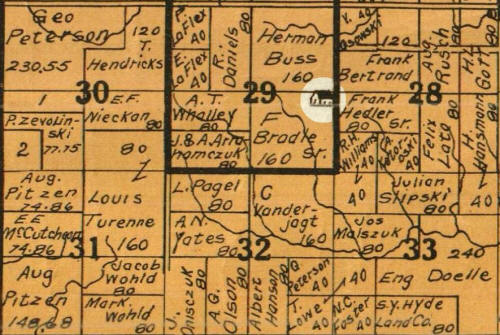 Geo
Peterson
230.55
120
T.
Hendricks
30
P.
LaFlex
40
E.
LaFlex
40
R.
Daniels
80
Herman
Buss
160
29
V.
40
120
Frank
Bertrand
Aug.
Rusch
80
H.
Gott
80
28
1
P. Zevolin-
ski
77.75
2
E.F.
Nieckan
80
80
A.T.
Whalley
80
J.&A. Arra
hamczuk
80
F
Bradle
Sr.
160
Frank
Hedler
Sr.
80
R.H.
Williams
40
40
40
Felix
Lata
80
H.
Hansmann
80
Aug.
Pitzen
74.86
E E
McCutcheon
74.86
31
Louis
Turenne
160
L. Pagel
80
A.N.
Yates
80
32
C
Vander-
jagt
160
Julian
Slipski
80
Jos
Malszuk
80
33
240
Aug
Pitzen
148.68
Jacob
Wohld
80
Mark.
Wohld
80
J.
80
A.G.
Olson
80
Albert
Hanson
80
G.
Peterson
40
40
T.
Lowe
40
W.C.
Foster
40
Eng Doelle
S.Y. Hyde
Land Co.
80